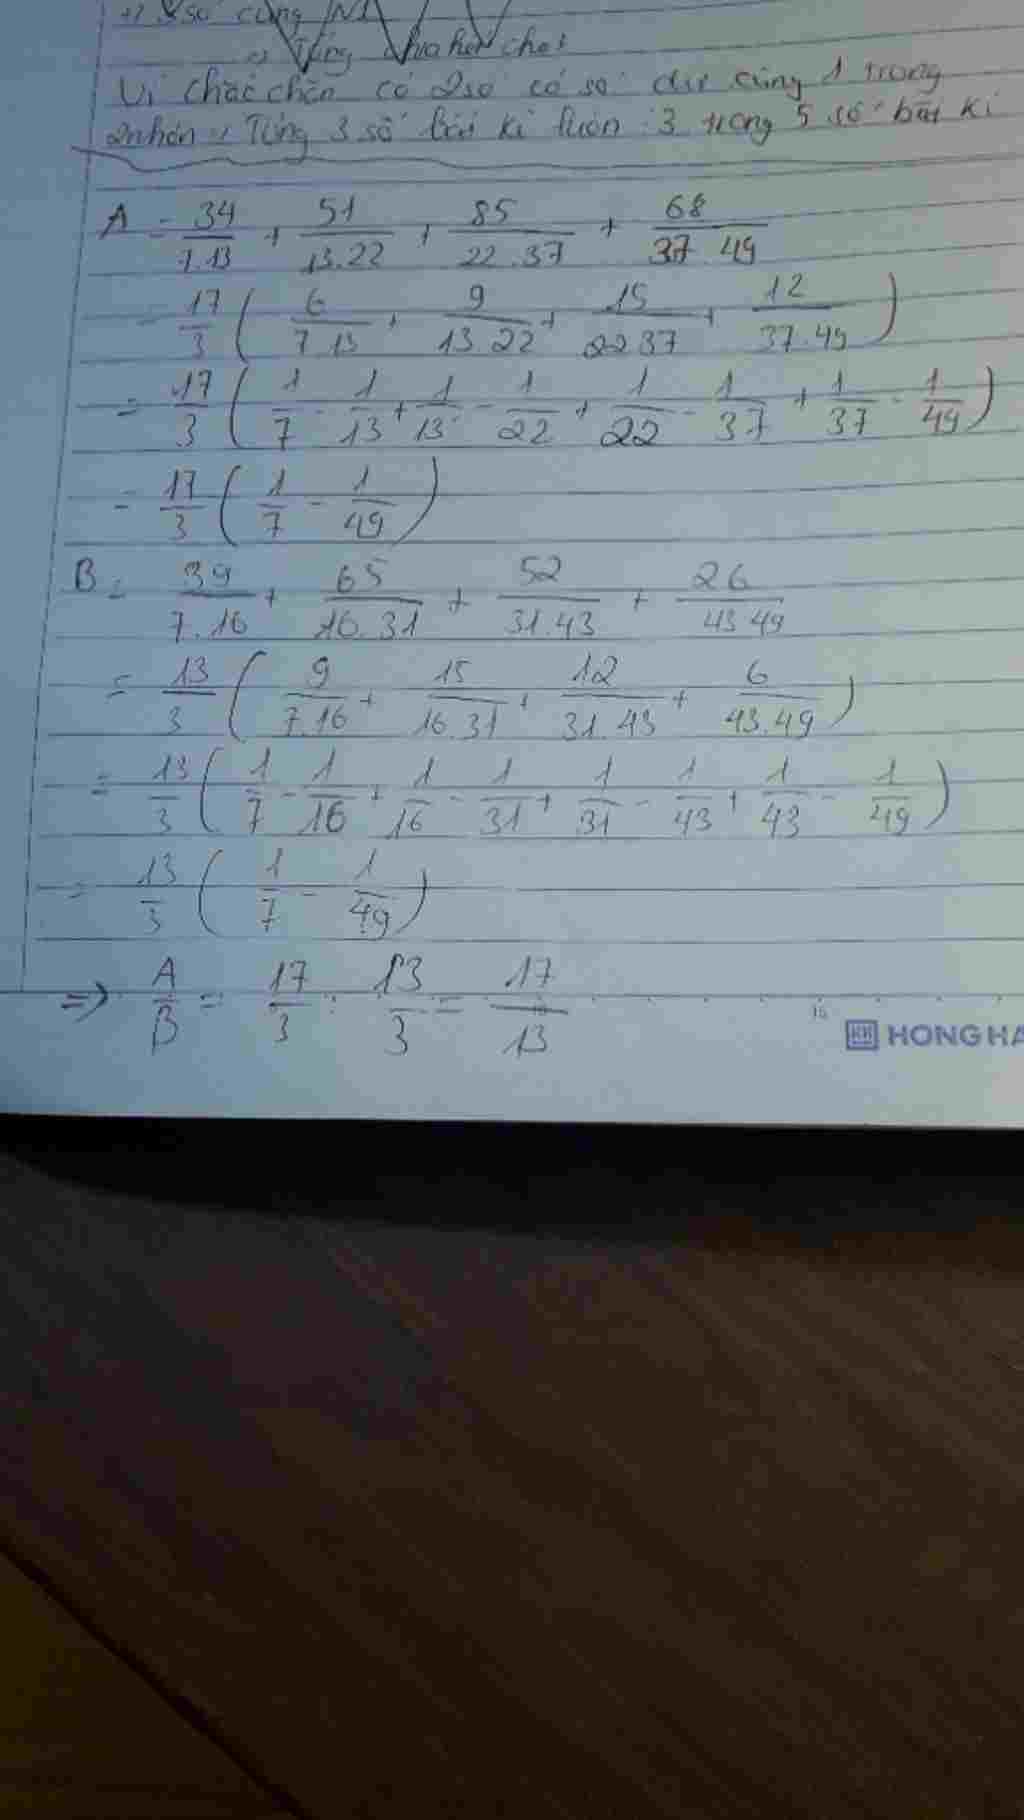 số cùng
Vì chắc chắn có 2 số có số dư cùng 1 trong
2 nhón Tổng 3 số bất kì luôn : 3 trong 5 số bất kì
A = 34/7.13 + 51/13.22 + 85/22.37 + 68/37.49
= 17/3 ( 6/7.13 + 9/13.22 + 15/22.37 + 12/37.49 )
= 17/3 ( 1/7 - 1/13 + 1/13 - 1/22 + 1/22 - 1/37 + 1/37 - 1/49 )
= 17/3 ( 1/7 - 1/49 )
B = 39/7.16 + 65/16.31 + 52/31.43 + 26/43.49
= 13/3 ( 9/7.16 + 15/16.31 + 12/31.43 + 6/43.49 )
= 13/3 ( 1/7 - 1/16 + 1/16 - 1/31 + 1/31 - 1/43 + 1/43 - 1/49 )
= 13/3 ( 1/7 - 1/49 )
=> A/B = 17/3 : 13/3 = 17/13
HONG HA